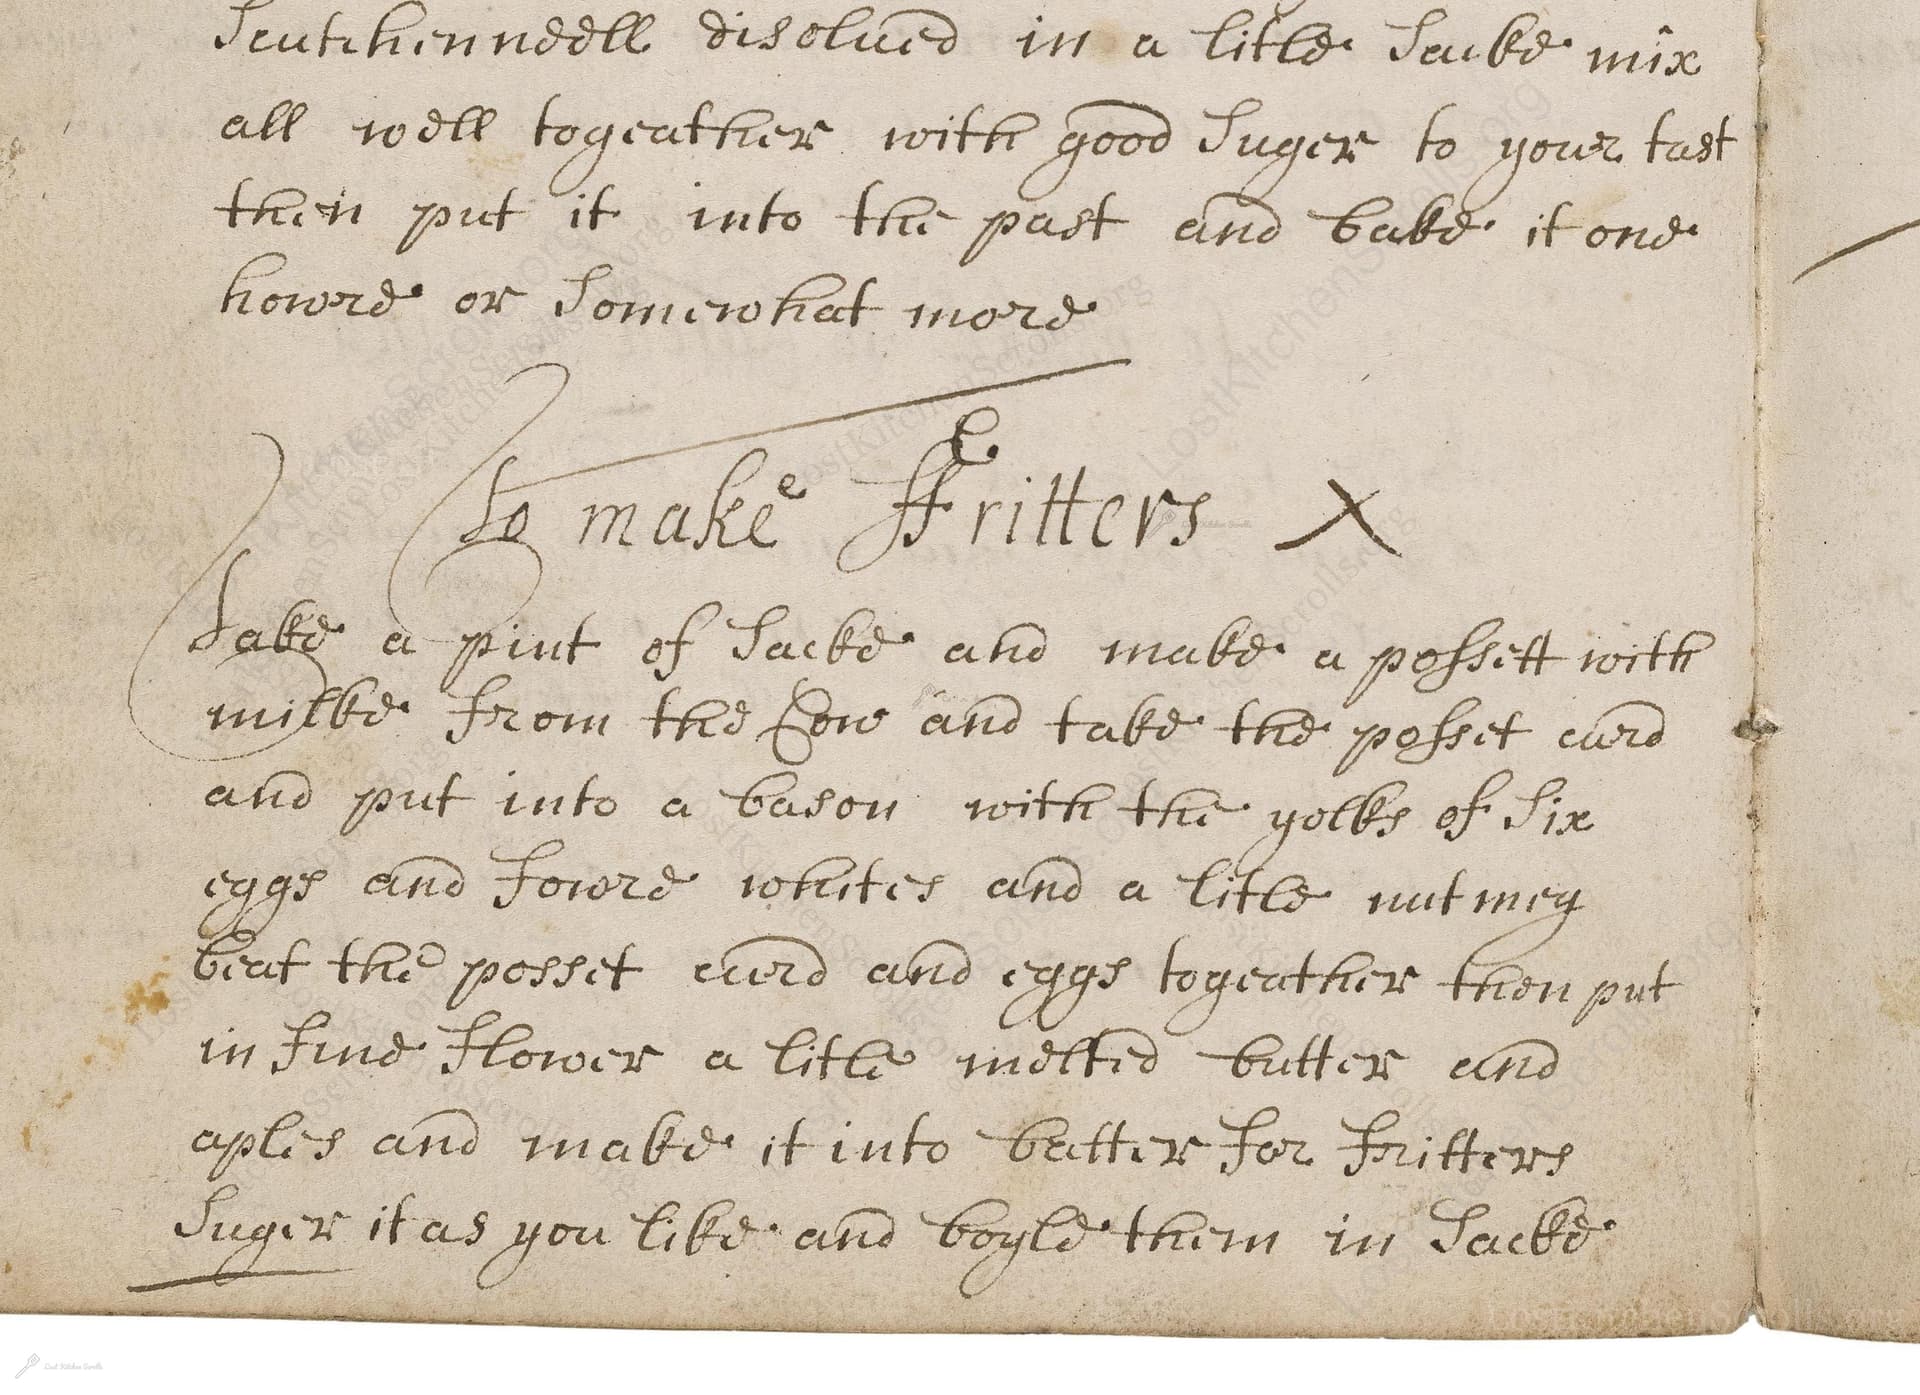 Scutchenneell disolued in a litle Sacke mix
all well togeather with good Suger to your tast
then put it into the past and bake it one
howre or Somewhat more
To make Ffritters X
Take a pint of Sacke and make a possett with
milke from the Cow and take the posset curd
and put into a bason with the yolks of Six
eggs and fowre whites and a litle nutmeg
beat the posset curd and eggs togeather then put
in fine flower a litle melted butter and
aples and make it into batter for fritters
Suger it as you like and boyle them in Sacke
LostKitchenScrolls.org
Lost Kitchen Scrolls